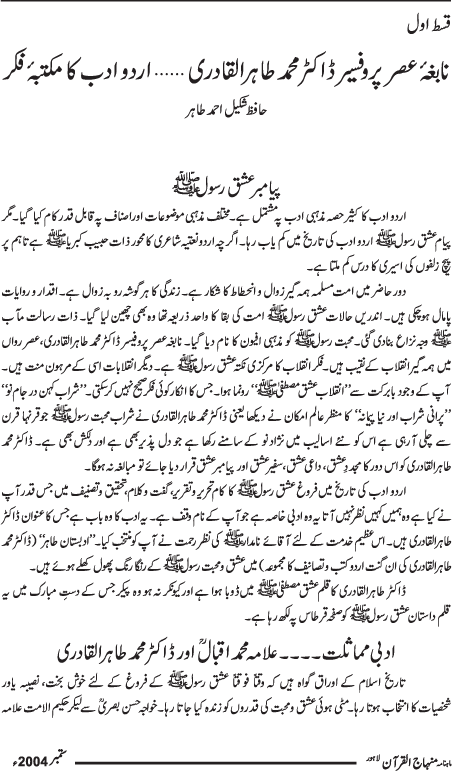 قسط اول
نابغۂ عصر پروفیسر ڈاکٹر محمد طاہر القادری ...... اردو ادب کا مکتبۂ فکر
حافظ شکیل احمد طاہر
پیامبر عشق رسول ﷺ
اردو ادب کا کثیر حصہ مذہبی ادب پہ مشتمل ہے۔ مختلف مذہبی موضوعات اور اصناف پہ قابل قدر کام کیا گیا۔ مگر
پیام عشق رسول ﷺ اردو ادب کی تاریخ میں کم یاب رہا۔ اگرچہ اردو نعتیہ شاعری کا محور ذات حبیب کبریا ﷺ ہے تاہم پر
پیچ زلفوں کی اسیری کا درس کم ملتا ہے۔
دور حاضر میں امت مسلمہ ہمہ گیر زوال و انحطاط کا شکار ہے۔ زندگی کا ہر گوشہ رو بہ زوال ہے۔ اقدار و روایات
پامال ہوچکی ہیں۔ اندریں حالات عشق رسول ﷺ امت کی بقا کا واحد ذریعہ تھا وہ بھی چھین لیا گیا۔ ذات رسالت مآب
ﷺ وجہ نزاع بنادی گئی۔ محبت رسول ﷺ کو مذہبی افیون کا نام دیا گیا۔ نابغہ عصر پروفیسر ڈاکٹر محمد طاہر القادری، عصر رواں
میں ہمہ گیر انقلاب کے نقیب ہیں۔ فکر انقلاب کا مرکزی نکتہ عشق رسول ﷺ ہے۔ دیگر انقلابات اسی کے مرہون منت ہیں۔
آپ کے وجود بابرکت سے ’’انقلاب عشق مصطفی ﷺ‘‘ رونما ہوا۔ جس کا انکار کوئی فکر صحیح نہیں کرسکتی۔ ’’شراب کہن در جام نو‘‘
’’پرانی شراب اور نیا پیمانہ‘‘ کا منظر عالم امکان نے دیکھا یعنی ڈاکٹر محمد طاہر القادری نے شراب محبت رسول ﷺ جو قرنہا قرن
سے چلی آرہی ہے اس کو نئے اسالیب میں نژاد نو کے سامنے رکھا ہے جو دل پذیر بھی ہے اور دلکش بھی ہے۔ ڈاکٹر محمد
طاہر القادری کو اس دور کا مجدد عشق، داعی عشق، سفیر عشق اور پیامبر عشق قرار دیا جائے تو مبالغہ نہ ہوگا۔
اردو ادب کی تاریخ میں فروغ عشق رسول ﷺ کا کام تحریر و تقریر، گفت و کلام، تحقیق و تصنیف میں جس قدر آپ
نے کیا ہے وہ ہمیں کہیں نظر نہیں آتا یہ وہ ادبی خاصہ ہے جو آپ کے نام وقف ہے۔ یہ ادب کا وہ باب ہے جس کا عنوان ڈاکٹر
طاہر القادری ہیں۔ اس عظیم خدمت کے لئے آقائے نامدار ﷺ کی نظر رحمت نے آپ کو منتخب کیا۔ ’’ادبستان طاہر‘‘ (ڈاکٹر محمد
طاہر القادری کی ان گنت اردو کتب و تصانیف کا مجموعہ) میں عشق و محبت رسول ﷺ کے رنگا رنگ پھول کھلے ہوئے ہیں۔
ڈاکٹر طاہر القادری کا قلم عشق مصطفی ﷺ میں ڈوبا ہوا ہے اور کیونکر نہ ہو وہ پیکر جس کے دست مبارک میں یہ
قلم داستان عشق رسول ﷺ کو صفحہ قرطاس پہ لکھ رہا ہے۔
ادبی مماثلت ۔۔۔۔ علامہ محمد اقبالؒ اور ڈاکٹر محمد طاہر القادری
تاریخ اسلام کے اوراق گواہ ہیں کہ وقتا فوقتا عشق رسول ﷺ کے فروغ کے لئے خوش بخت، نصیبہ یاور
شخصیات کا انتخاب ہوتا رہا۔ مٹی ہوئی عشق و محبت کی قدروں کو زندہ کیا جاتا رہا۔ خواجہ حسن بصریؒ سے لیکر حکیم الامت علامہ
ماہنامہ منہاج القرآن لاہور
ستمبر 2004ء